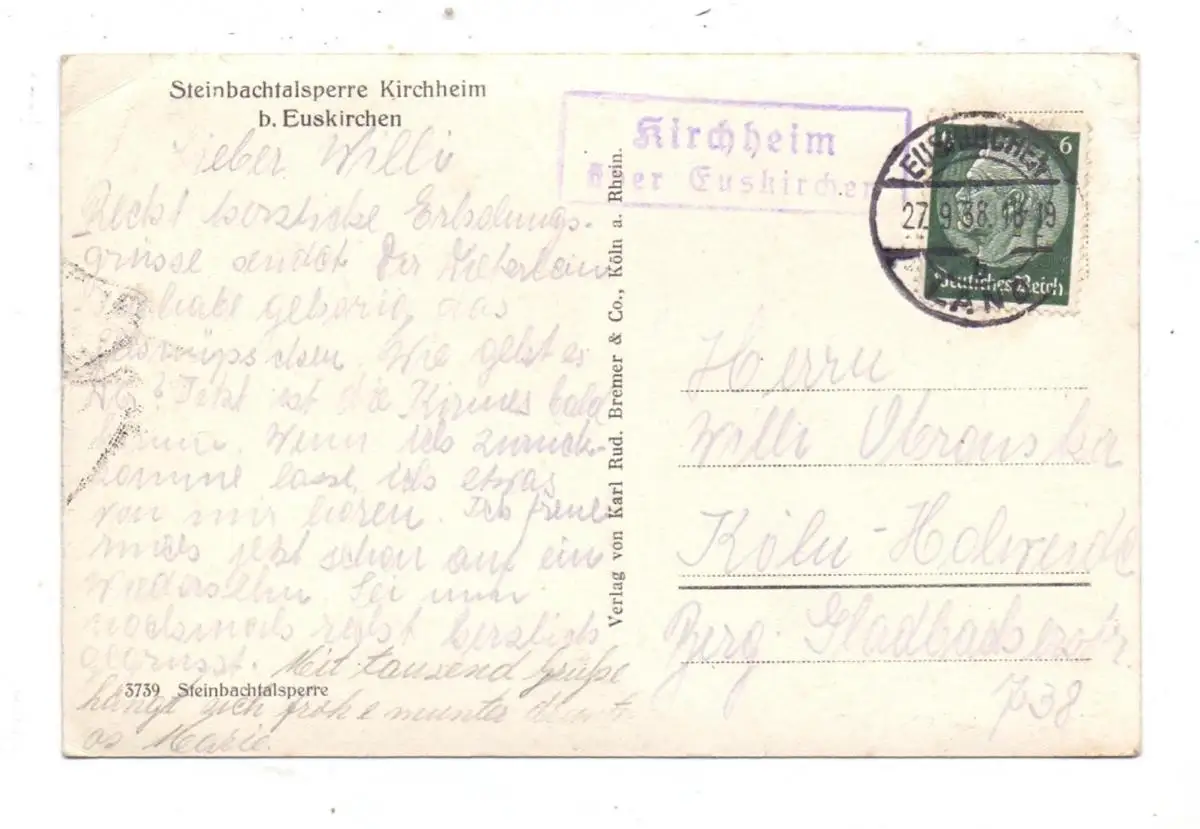 Steinbachtalsperre Kirchheim
b. Euskirchen
Lieber Willi
Recht herzliche Erholungs-
grüsse sendet Dir
aus
Wie geht es
Dir? Jetzt ist die Kirmes bald
Wenn ich zurück-
komme lasse ich etwas
von mir hören. Ich freue
mich jetzt schon auf ein
Wiedersehn. Sei nun
nochmals recht herzlich
gegrüsst. Mit tausend Grüße
hängt sich frohe munter
Marie.
3739 Steinbachtalsperre
Verlag von Karl Rud. Bremer & Co., Köln a. Rhein.
Kirchheim
über Euskirchen
EUSKIRCHEN
27.9.38. 18-19
b
LAND
6
Deutsches Reich
Herrn
Willi
Köln-Holweide
Berg. Gladbacherstr.
738